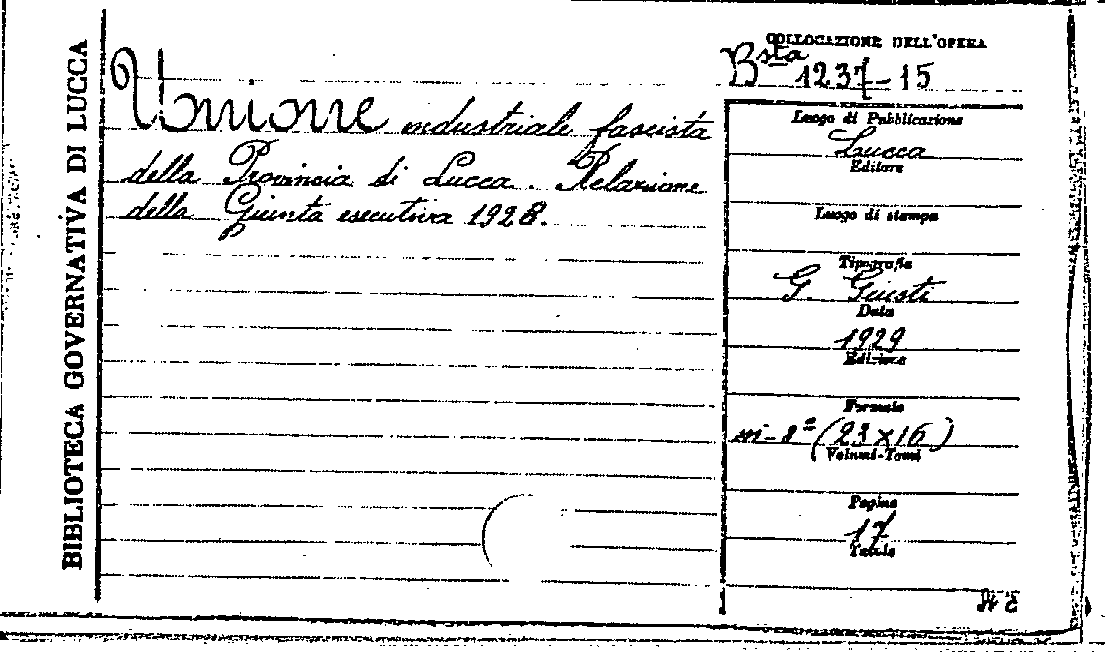 BIBLIOTECA GOVERNATIVA DI LUCCA
COLLOCAZIONE DELL'OPERA
Bsta 1237-15
Unione industriale fascista
della Provincia di Lucca. Relazione
della Giunta esecutiva 1928.
Luogo di Pubblicazione
Lucca
Editore
Luogo di stampa
Tipografia
G. Giusti
Data
1929
Edizione
Formato
in-8º (23x16)
Volumi-Tomi
Pagine
17
Tavole